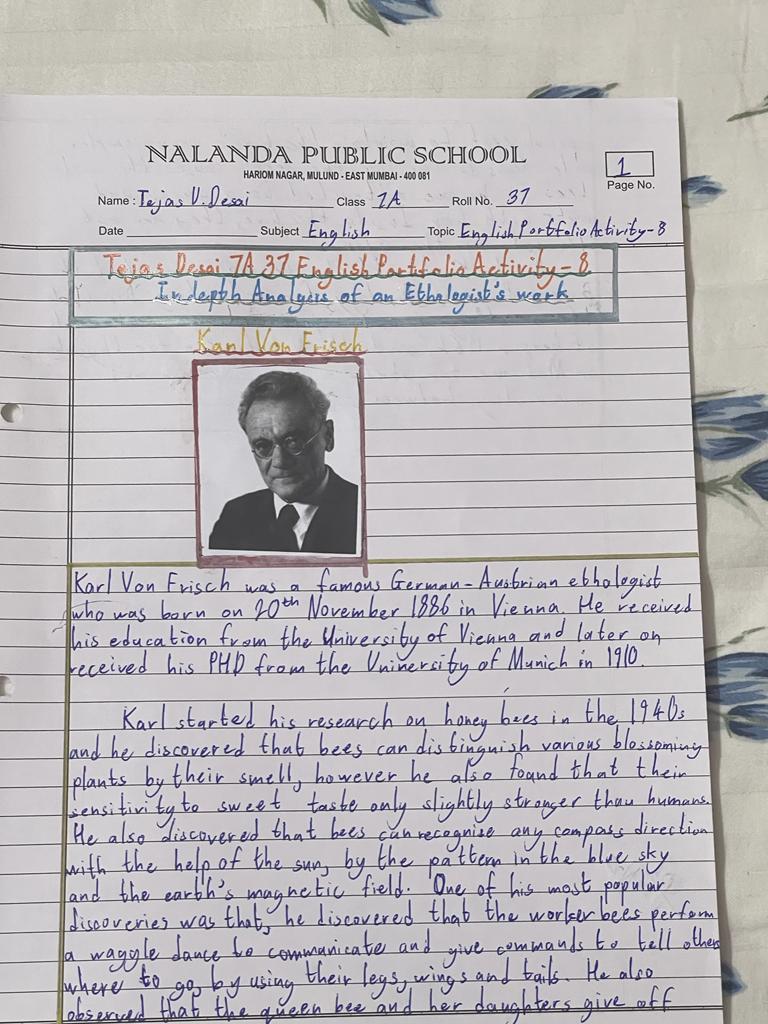 NALANDA PUBLIC SCHOOL
HARIOM NAGAR, MULUND - EAST MUMBAI - 400 081
1
Page No.
Name : Tejas V. Desai Class 7A Roll No. 37
Date Subject English Topic English Portfolio Activity-8
Tejas Desai 7A 37 English Portfolio Activity-8
Indepth Analysis of an Ethologist's work
Karl Von Frisch
Karl Von Frisch was a famous German-Austrian ethologist
who was born on 20th November 1886 in Vienna. He received
his education from the University of Vienna and later on
received his PHD from the University of Munich in 1910.
Karl started his research on honey bees in the 1940s
and he discovered that bees can distinguish various blossoming
plants by their smell, however he also found that their
sensitivity to sweet taste only slightly stronger than humans.
He also discovered that bees can recognise any compass direction
with the help of the sun, by the pattern in the blue sky
and the earth's magnetic field. One of his most popular
discoveries was that, he discovered that the worker bees perform
a waggle dance to communicate and give commands to tell others
where to go, by using their legs, wings and tails. He also
observed that the queen bee and her daughters give off